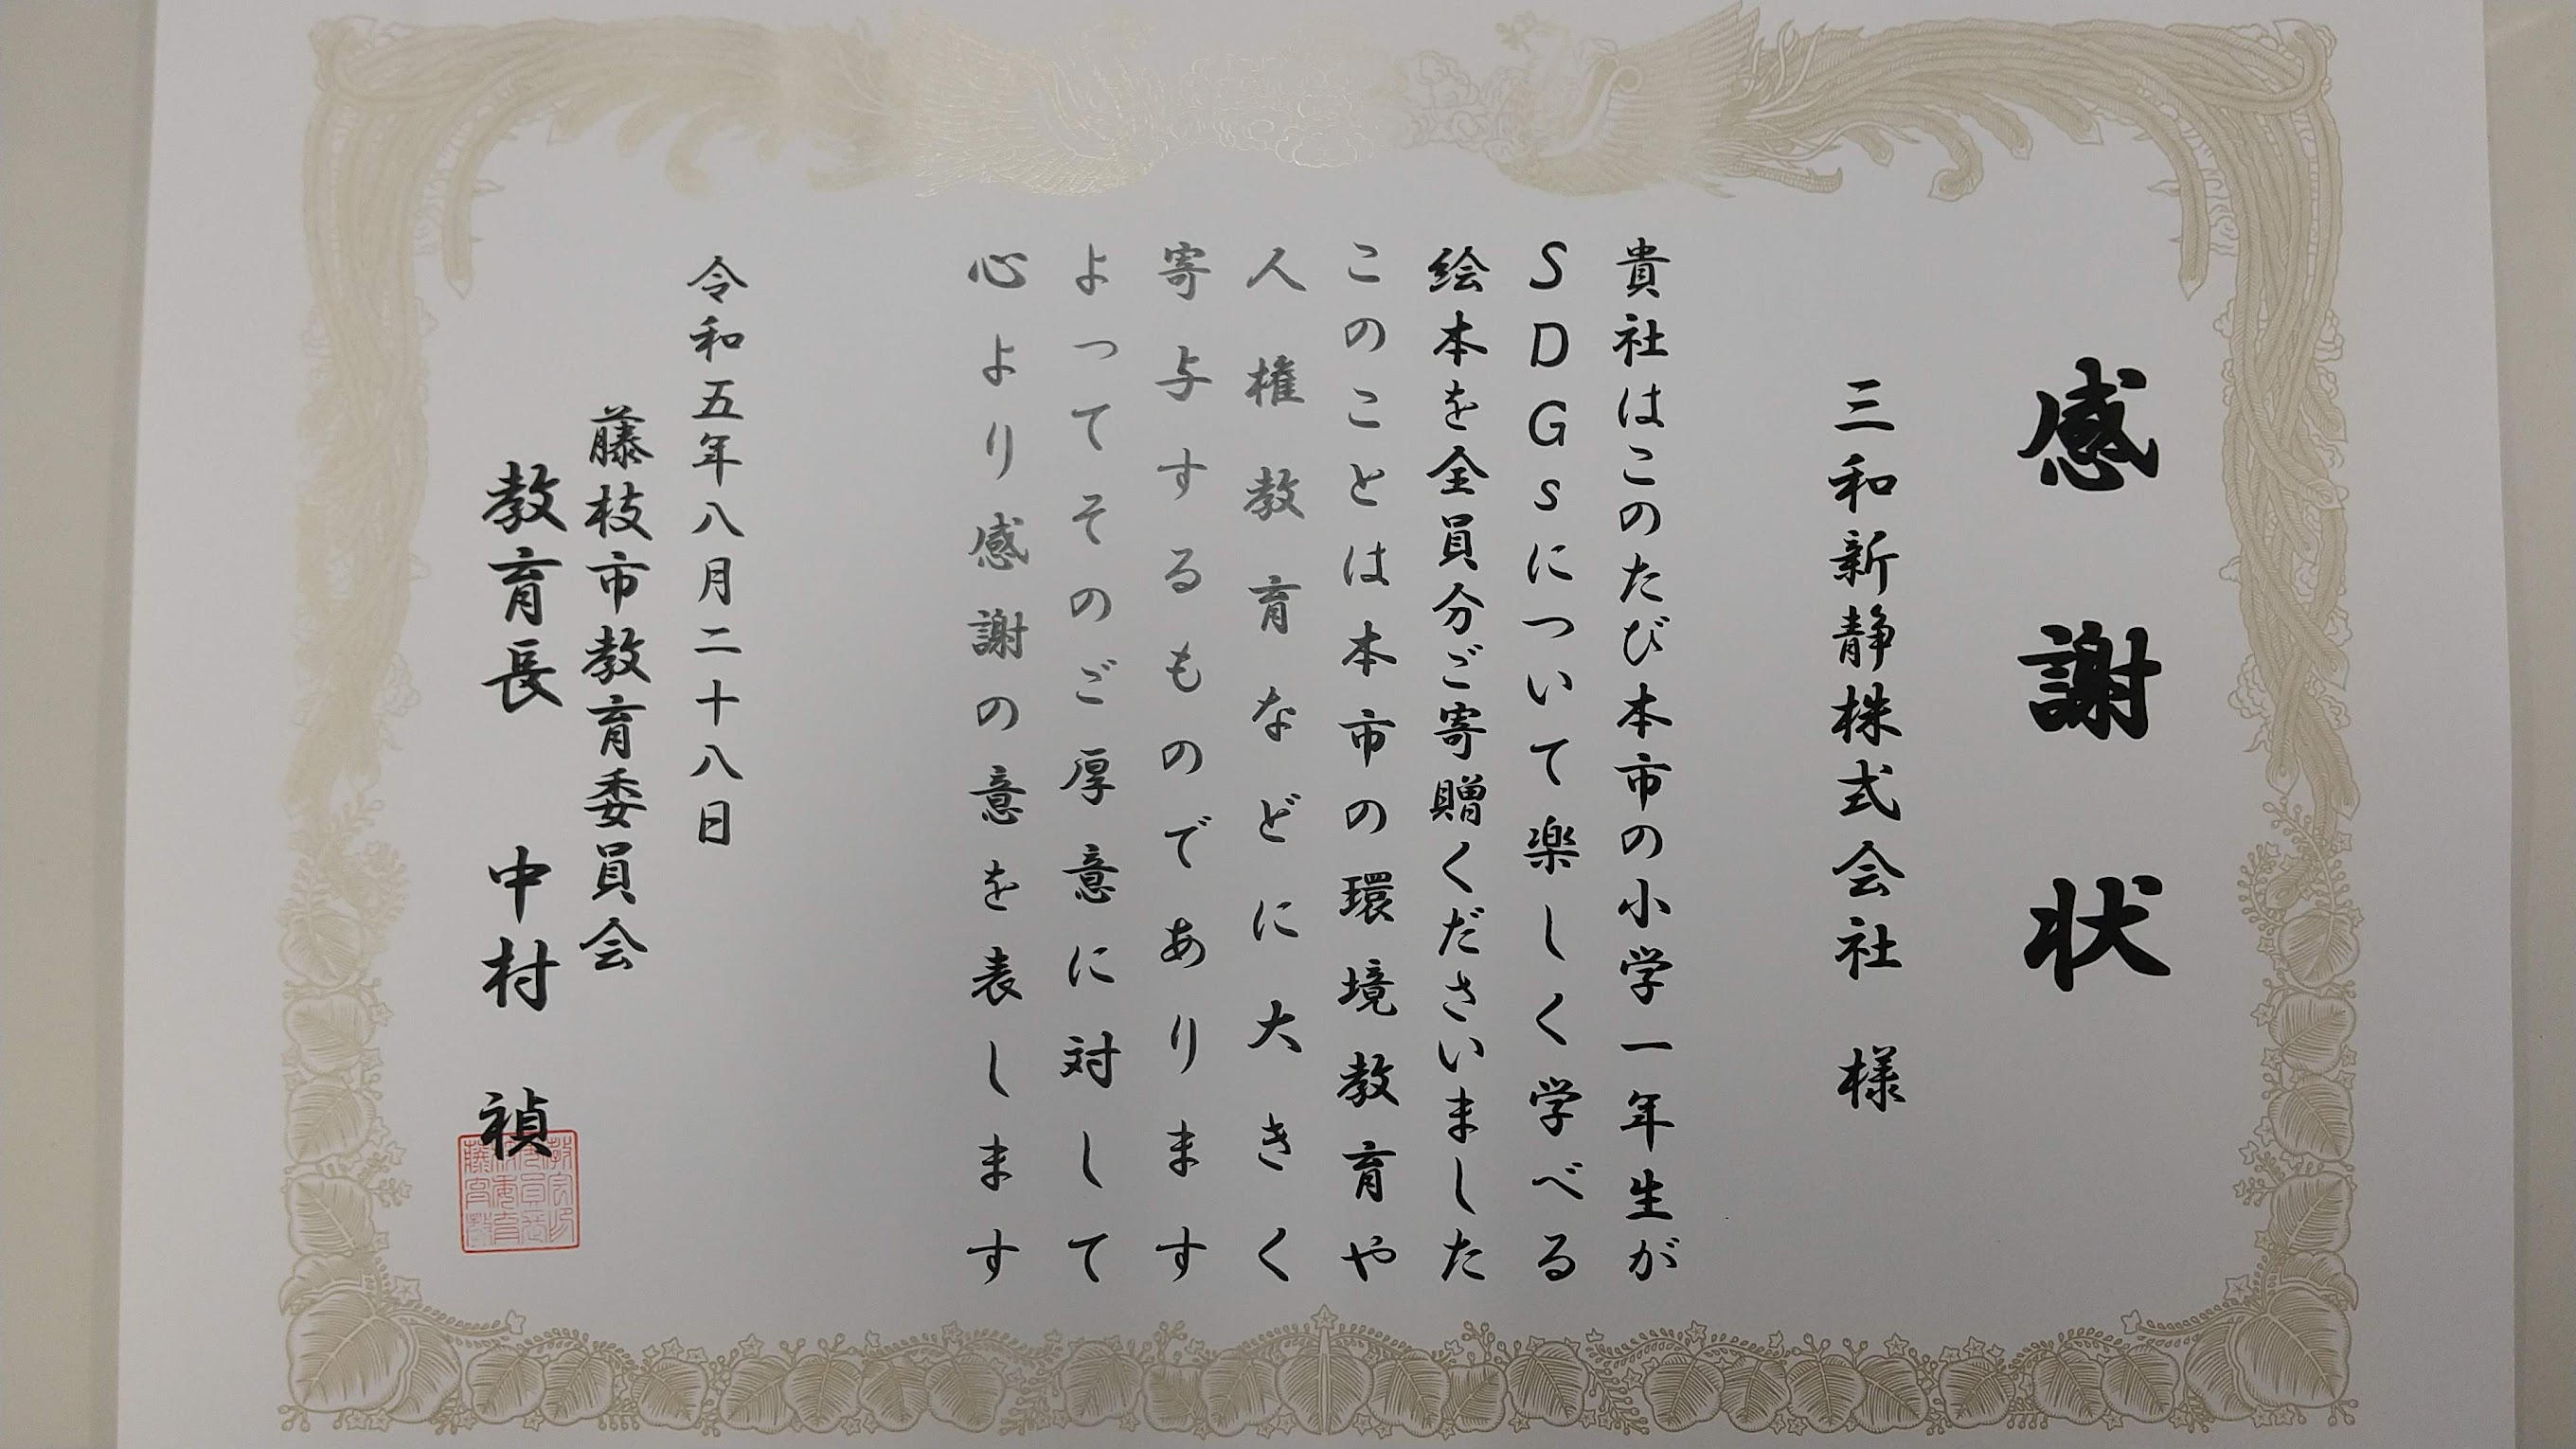 感謝状
三和新静株式会社 様
貴社はこのたび本市の小学一年生が
SDGsについて楽しく学べる
絵本を全員分ご寄贈くださいました
このことは本市の環境教育や
人権教育などに大きく
寄与するものであります
よってそのご厚意に対して
心より感謝の意を表します
令和五年八月二十八日
藤枝市教育委員会
教育長 中村 禎